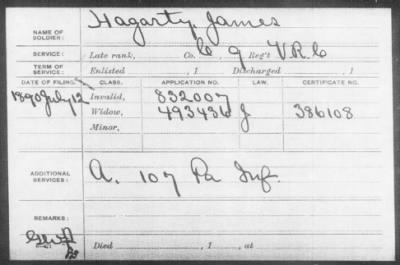 NAME OF SOLDIER: Hagarty, James
SERVICE: Late rank, Co. C 9 Reg't V.R.C
TERM OF SERVICE: Enlisted , 1 Discharged , 1
DATE OF FILING. CLASS. APPLICATION NO. LAW. CERTIFICATE NO.
1890 July 12 Invalid, 832007
Widow, 493436 J 386108
Minor,
ADDITIONAL SERVICES: A. 107 Pa Inf.
REMARKS:
Died , 1 , at